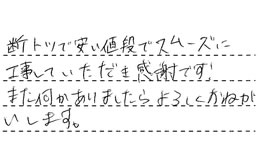 断トツで安い値段でスムーズに
工事していただき感謝です!
また何かありましたらよろしくおねが
いします。